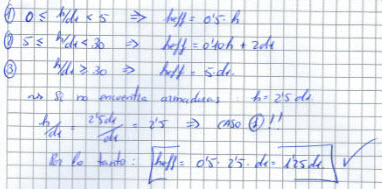 ① 0 ≤ h/de < 5 ⇒ heff = 0'5·h
② 5 ≤ h/de < 30 ⇒ heff = 0'10h + 2de
③ h/de ≥ 30 ⇒ heff = 5·de.
~> Si no encuentra armaduras h = 2'5 de
h/de = 2'5de/de = 2'5 ⇒ CASO ①!!
Por lo tanto: heff = 0'5 · 2'5 · de = 1'25de